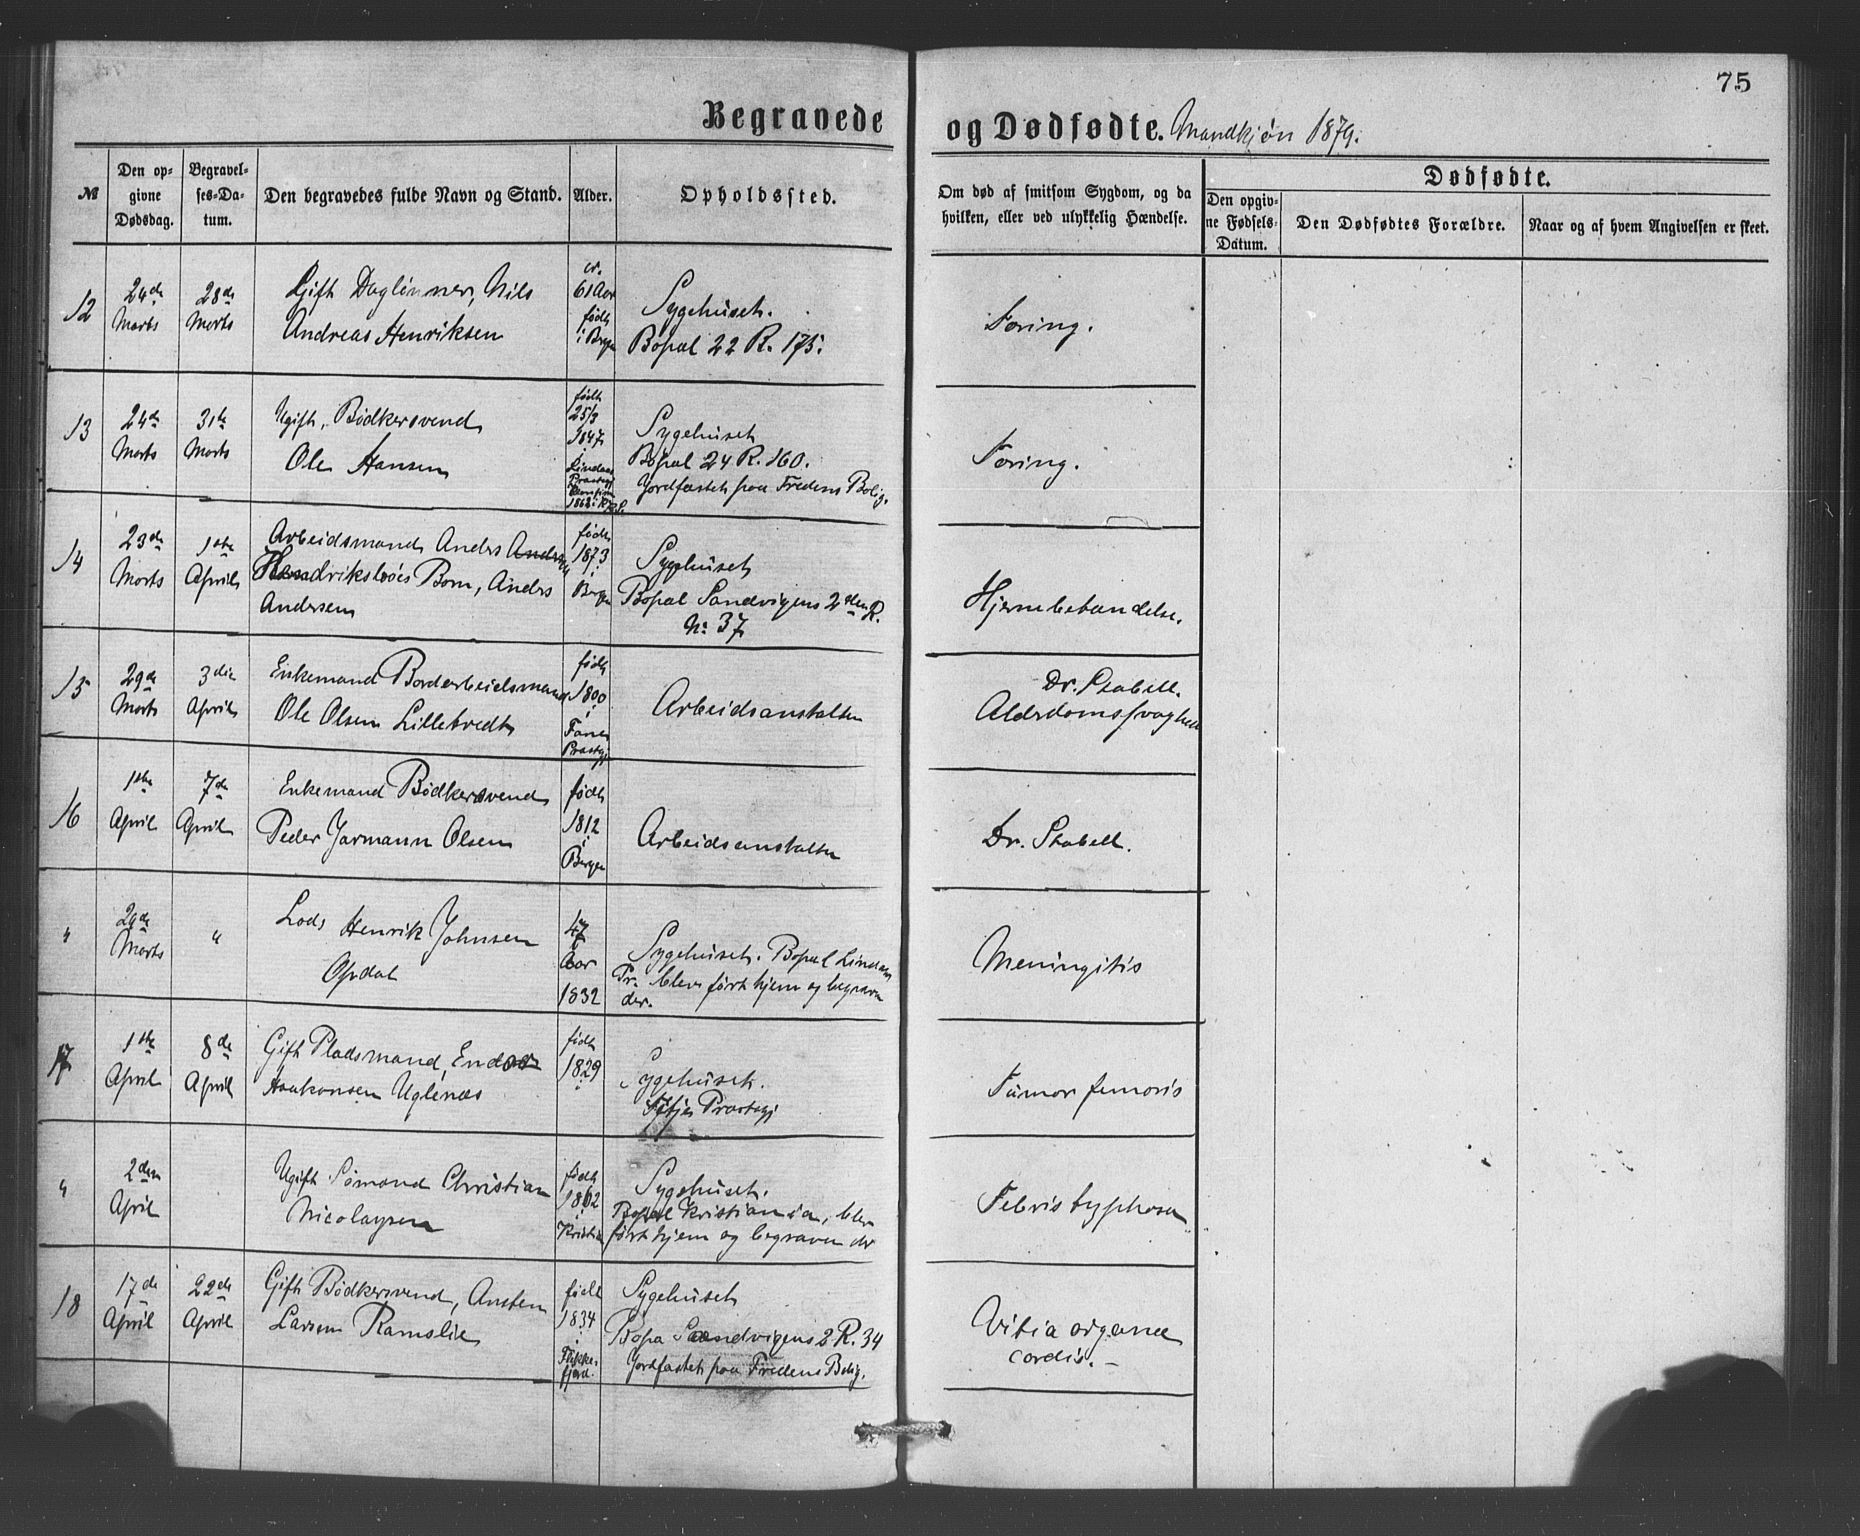 75
Begravede og Dødfødte. Mandkjøn 1879.
№
Den opgivne Dødsdag.
Begravelses-Datum.
Den begravedes fulde Navn og Stand.
Alder.
Opholdssted.
Om død af smitsom Sygdom, og da hvilken, eller ved ulykkelig Hændelse.
Dødfødte.
Den opgivne Fødsels-Datum.
Den Dødfødtes Forældre.
Naar og af hvem Angivelsen er skeet.
12
24de Marts
28de Marts
Gift Daglønner, Nils
Andreas Henriksen
cr. 61 Aar født i Bergen
Sygehuset.
Bopæl 22 R. 175.
Tæring.
13
24de Marts
31te Marts
Ugift, Bødkersvend
Ole Hansen
født 25/3 1847 i Lindaas Præstegj
1862
Sygehuset
Bopæl 24 R. 160.
Jordfæstet paa Fredens Bolig.
Tæring.
14
23de Marts
1ste April
Arbeidsmand Anders
Barn, Anders
Andersen
født 1873 i Bergen
Sygehuset
Bopæl Sandvigens 2den R.
No 37
Hjernebetændelse.
15
29de Marts
3die April
Enkemand Bordarbeidsmand
Ole Olsen Lilletvedt
født 1800 i Fane Præstegj
Arbeidsanstalten
Dr. Stabell.
Alderdomssvaghed
16
1ste April
7de April
Enkemand Bødkersvend
Peder Jarmann Olsen
født 1812 i Bergen
Arbeidsanstalten
Dr. Stabell.
"
29de Marts
"
Lods Henrik Johnsen
Opdal
47 Aar
1832
Sygehuset. Bopæl Lindaas
Pr. blev ført hjem og begraven
der.
Meningitis
17
1ste April
8de April
Gift Pladsmand,
Haakonsen Uglenæs
født 1829
Sygehuset.
Præstegj
Tumor femoris
"
2den April
Ugift Sømand Christian
Nicolaysen
født 1862 i Kristia
Sygehuset.
Bopæl Kristiania, blev
ført hjem og begraven der
Febris typhosa
18
17de April
22de April
Gift Bødkersvend, Austen
Larsen Ramslie
født 1834 i Flekkefjord.
Sygehuset
Bopæl Sandvigens 2 R. 34
Jordfæstet paa Fredens Bolig.
Vitia organa
cordis. –